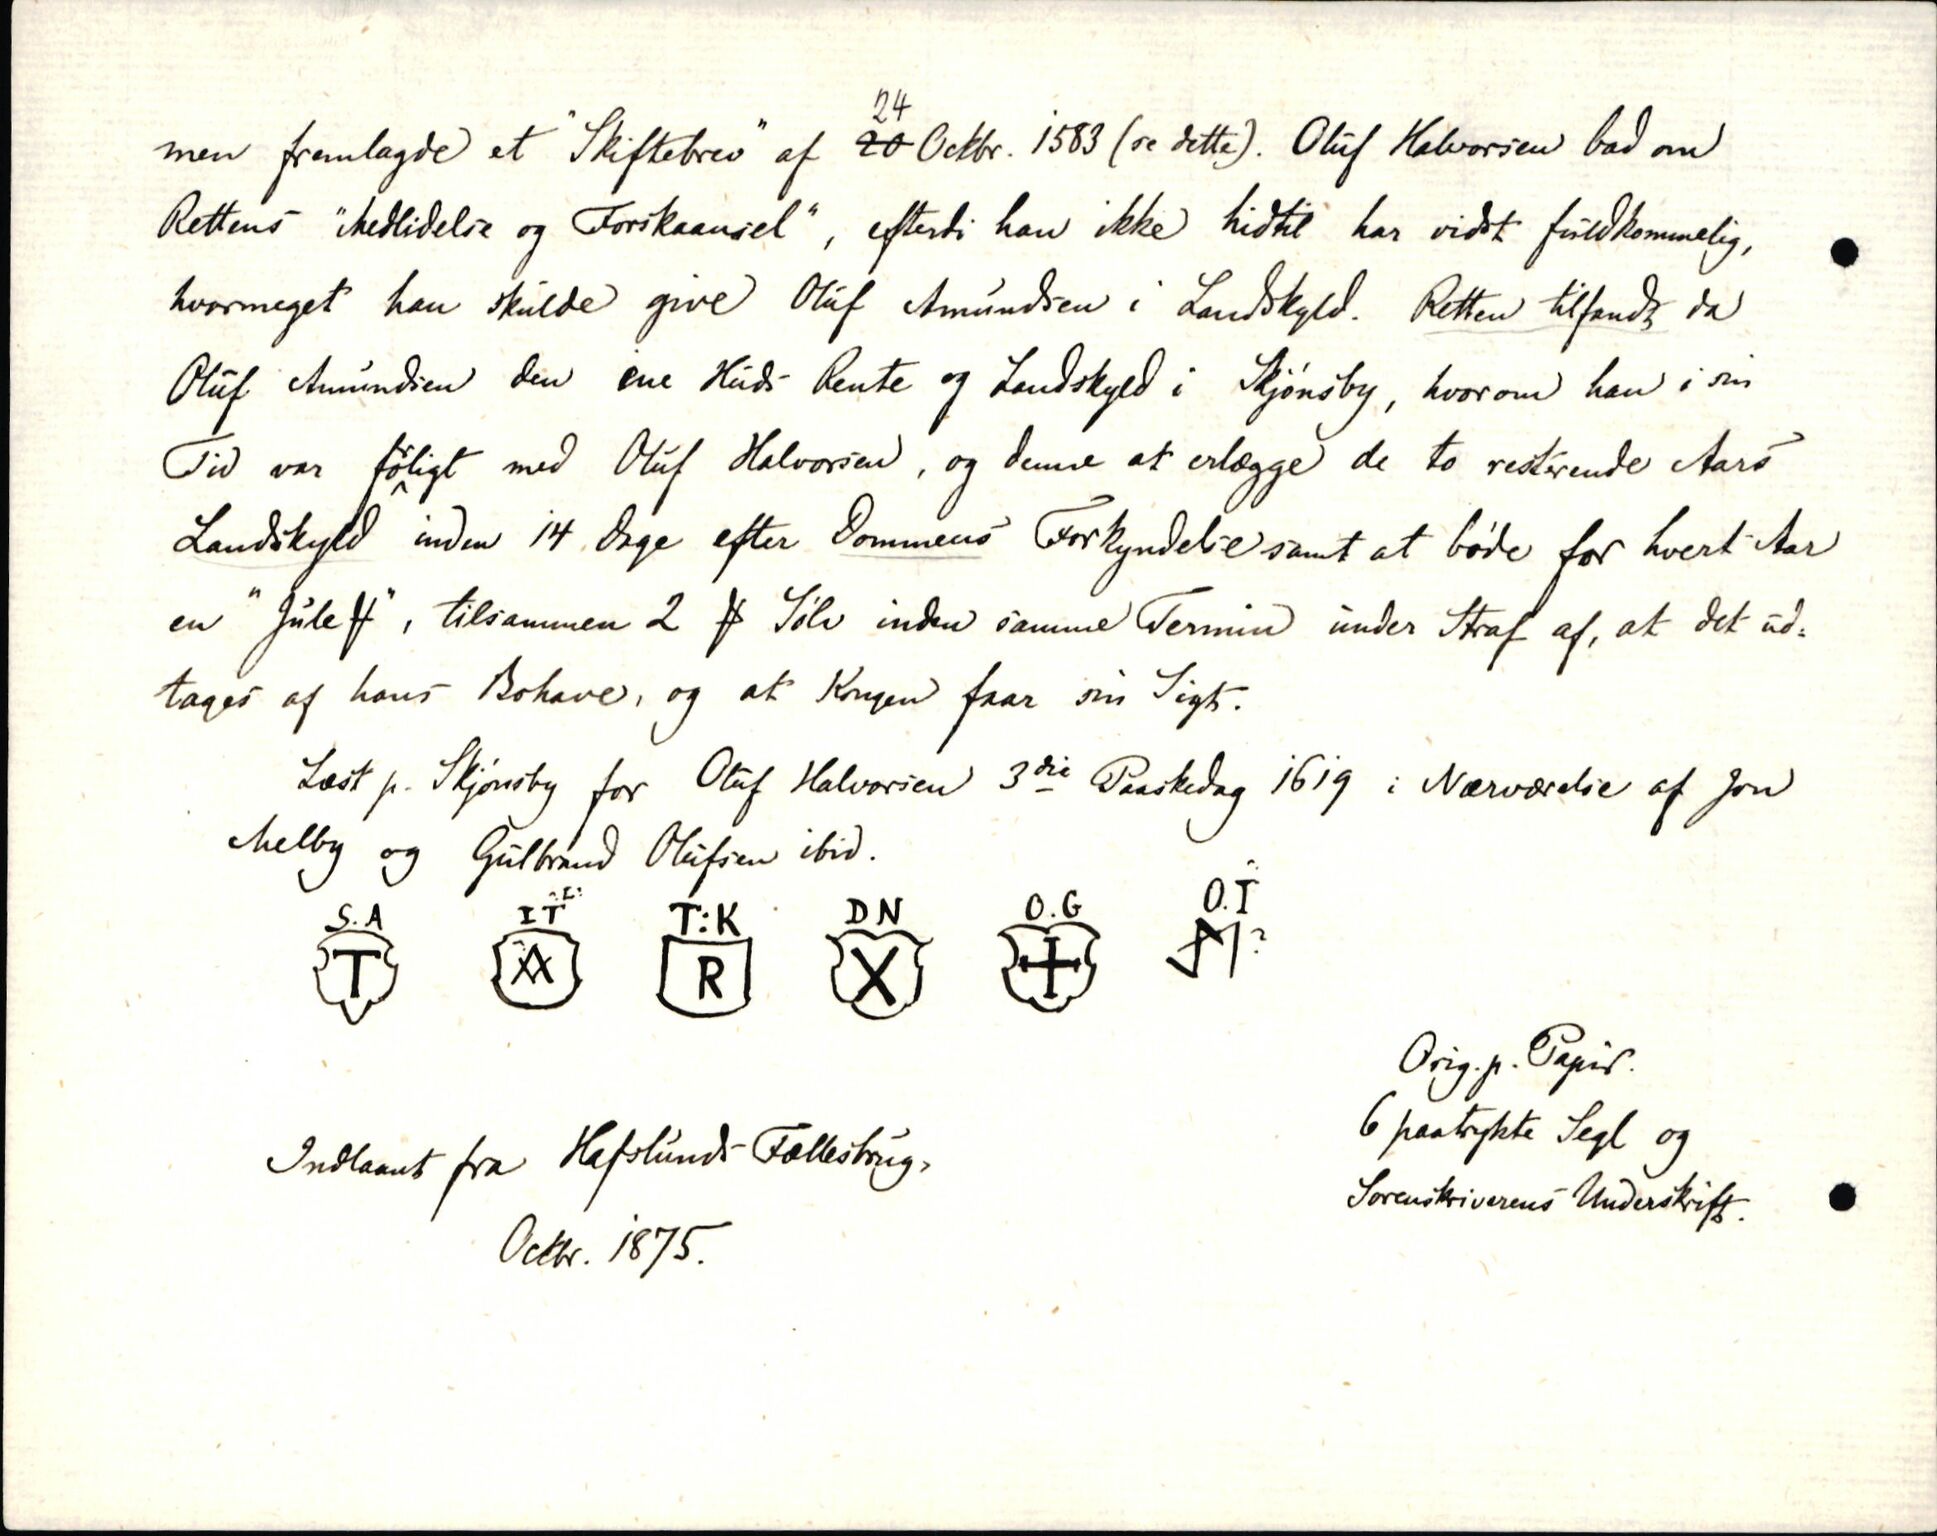 men fremlagde et "Skiftebrev" af 24 Octbr. 1583 (se dette). Oluf Halvorsen bad om
Rettens "Medlidelse og Forskaansel", efterdi han ikke hidtil har vidst fuldkommelig,
hvormeget han skulde give Oluf Amundsen i Landskyld. Retten tilfandt da
Oluf Amundsen den ene Huds Rente og Landskyld i Skjønsby, hvorom han i sin
Tid var forligt med Oluf Halvorsen, og denne at erlægge de to resterende Aars
Landskyld inden 14 Dage efter Dommens Forkyndelse samt at bøde for hvert Aar
en "Jule℔", tilsammen 2 ℔ Sølv inden samme Termin under Straf af, at det ud-
tages af hans Bohave, og at Kongen faar sin Sigt.
Læst p. Skjønsby for Oluf Halvorsen 3die Paaskedag 1619 i Nærværelse af Jon
Melby og Gulbrand Olufsen ibid.
S.A IT:L: T:K DN O.G O.I
T R X ?
Orig. p. Papir.
6 paatrykte Segl og
Sorenskriverens Underskrift.
Indlaant fra Hafslunds Fællesbrug,
Octbr. 1875.